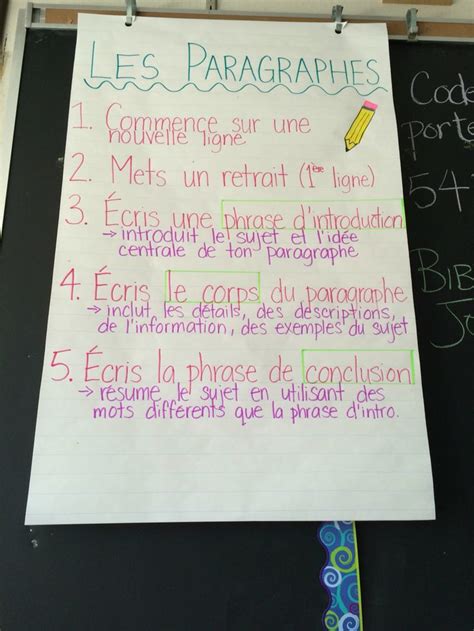 LES PARAGRAPHES
1. Commence sur une
nouvelle ligne
2. Mets un retrait (1ère ligne)
3. Écris une phrase d'introduction
→ introduit le sujet et l'idée
centrale de ton paragraphe
4. Écris le corps du paragraphe
→ inclut les détails, des descriptions,
de l'information, des exemples du sujet
5. Écris la phrase de conclusion
→ résume le sujet en utilisant des
mots différents que la phrase d'intro.
Code
porte
54
BIB